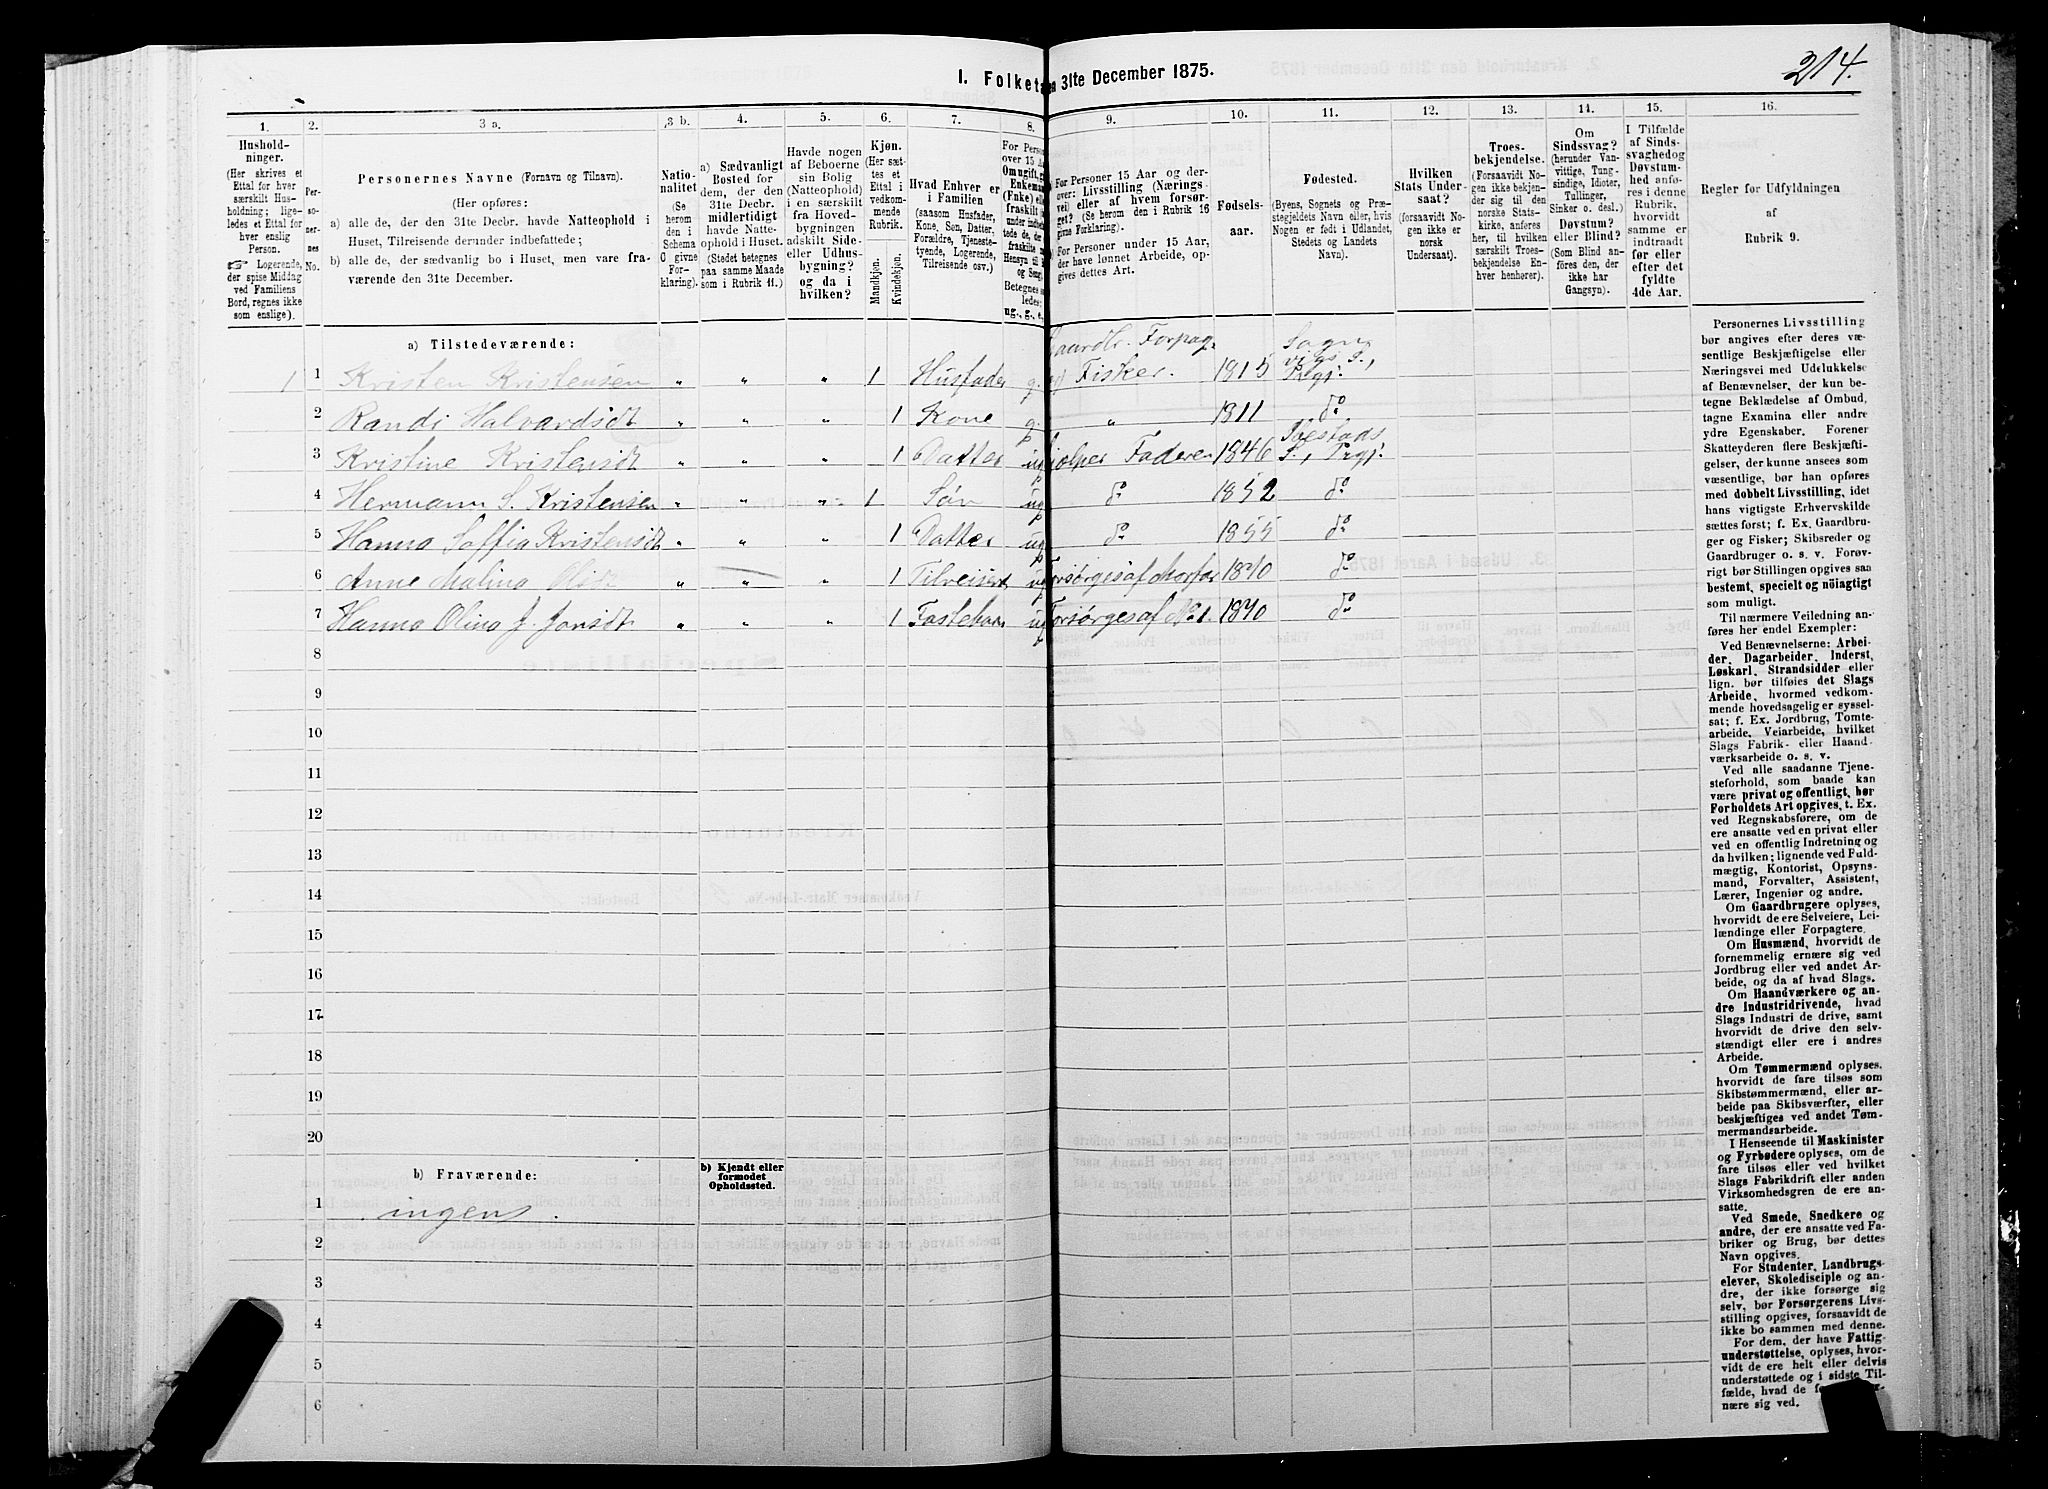 214.
I. Folketa n 31te December 1875.
1. 2. 3 a. 3 b. 4. 5. 6. 7. 8. 9. 10. 11. 12. 13. 14. 15. 16.
Husholdninger.
(Her skrives et
Ettal for hver
særskilt Husholdning;
ligeledes et Ettal for
hver enslig
Person.
☞ Logerende,
der spise Middag
ved Familiens
Bord, regnes ikke
som enslige).
Personernes No.
Personernes Navne (Fornavn og Tilnavn).
(Her opføres:
a) alle de, der den 31te Decbr. havde Natteophold i
Huset, Tilreisende derunder indbefattede;
b) alle de, der sædvanlig bo i Huset, men vare fraværende
den 31te December.
Nationalitet
(Se
herom
den i
Schema
C givne
Forklaring).
a) Sædvanligt
Bosted for
dem, der den
31te Decbr.
midlertidigt
havde Natteophold
i Huset.
(Stedet betegnes
paa samme Maade
som i Rubrik 11.)
Havde nogen
af Beboerne
sin Bolig
(Natteophold)
i en særskilt
fra Hovedbygningen
adskilt Side-
eller Udhusbygning?
og da i
hvilken?
Kjøn.
(Her sættes
et
Ettal i
vedkommende
Rubrik.
Mandkjøn.
Kvindekjøn.
Hvad Enhver er
i Familien
(saasom Husfader,
Kone, Søn, Datter,
Forældre, Tjenestetyende,
Logerende,
Tilreisende osv.)
For Person
over 15 Aa
Om ugift, g
Enkema
(Enke) elle
fraskilt
Betegnes saa
ledes:
ug., g., e.,
For Personer 15 Aar og derover:
Livsstilling (Næringsvei)
eller af hvem forsørget?
(Se herom de i Rubrik 16
givne Forklaring).
For Personer under 15 Aar,
der have lønnet Arbeide, opgives
dettes Art.
Fødselsaar.
Fødested.
(Byens, Sognets og Præstegjeldets
Navn eller, hvis
Nogen er født i Udlandet,
Stedets og Landets
Navn).
Hvilken
Stats Undersaat?
(forsaavidt Nogen
ikke er
norsk
Undersaat).
Troesbekjendelse.
(Forsaavidt Nogen
ikke bekjender
sig til den
norske Statskirke,
anføres
her, til hvilken
særskilt Troesbekjendelse
Enhver
henhører).
Om
Sindssvag?
(herunder Vanvittige,
Tungsindige,
Idioter,
Tullinger,
Sinker o. desl.)
Døvstum?
eller Blind?
(Som Blind anføres
den, der
ikke har
Gangsyn).
I Tilfælde
af Sindssvaghed og
Døvstumhed
anføres
i denne
Rubrik,
hvorvidt
samme er
indtraadt
før eller
efter det
fyldte
4de Aar.
Regler for Udfyldningen
af
Rubrik 9.
a) Tilstedeværende:
1 1 Kristen Kristensen „ „ „ 1 Husfader g. Gaardbr. Forpag. og Fisker. 1815 Sagnevigs S., Prgj:
2 Randi Halvardsdt „ „ „ 1 Kone g. „ 1811 do
3 Kristine Kristensdt „ „ „ 1 Datter ug hjelper Faderen 1846 S., Prgj:
4 Hermann S. Kristensen „ „ „ 1 Søn ug do 1852 do
5 Hanna Soffia Kristensdt „ „ „ 1 Datter ug do 1855 do
6 Anne Malina Olsdt „ „ „ 1 ug Forsørges af Morfar 1870 do
7 Hanna Olina J. Jonsdt „ „ „ 1 Fostebarn ug Forsørges af No 1. 1870 do
8
9
10
11
12
13
14
15
16
17
18
19
20
b) Fraværende:
b) Kjendt eller
formodet
Opholdssted.
1 ingen.
2
3
4
5
6
Personernes Livsstilling
bør angives efter deres væsentlige
Beskjæftigelse eller
Næringsvei med Udelukkelse
af Benævnelser, der kun betegne
Beklædelse af Ombud,
tagne Examina eller andre
ydre Egenskaber. Forener
Skatteyderen flere Beskjæftigelser,
der kunne ansees som
væsentlige, bør han opføres
med dobbelt Livsstilling, idet
hans vigtigste Erhvervskilde
sættes først; f. Ex. Gaardbruger
og Fisker; Skibsreder og
Gaardbruger o. s. v. Forøvrigt
bør Stillingen opgives saa
bestemt, specielt og nöiagtigt
som muligt.
Til nærmere Veiledning anføres
her endel Exempler:
Ved Benævnelserne: Arbeider,
Dagarbeider, Inderst,
Løskarl, Strandsidder eller
lign. bør tilføies det Slags
Arbeide, hvormed vedkommende
hovedsagelig er sysselsat;
f. Ex. Jordbrug, Tomtearbeide,
Veiarbeide, hvilket
Slags Fabrik- eller Haandværksarbeide
o. s. v.
Ved alle saadanne Tjenesteforhold,
som baade kan
være privat og offentligt, bør
Forholdets Art opgives, t. Ex.
ved Regnskabsførere, om de
ere ansatte ved en privat eller
ved en offentlig Indretning og
da hvilken; lignende ved Fuldmægtig,
Kontorist, Opsynsmand,
Forvalter, Assistent,
Lærer, Ingeniør og andre.
Om Gaardbrugere oplyses,
hvorvidt de ere Selveiere, Leilændinge
eller Forpagtere.
Om Husmænd, hvorvidt de
fornemmelig ernære sig ved
Jordbrug eller ved andet Arbeide,
og da af hvad Slags.
Om Haandværkere og andre
Industridrivende, hvad
Slags Industri de drive, samt
hvorvidt de drive den selvstændigt
eller ere i andres
Arbeide.
Om Tømmermænd oplyses,
hvorvidt de fare tilsøs som
Skibstømmermænd, eller arbeide
paa Skibsværfter, eller
beskjæftiges ved andet Tømmermandsarbeide.
I Henseende til Maskinister
og Fyrbødere oplyses, om de
fare tilsøs eller ved hvilket
Slags Fabrikdrift eller anden
Virksomhedsgren de ere ansatte.
Ved Smede, Snedkere og
andre, der ere ansatte ved Fabriker
og Brug, bør dettes
Navn opgives.
For Studenter, Landbrugselever,
Skoledisciple og andre,
der ikke forsørge sig
selv, bør Forsørgerens Livsstilling
opgives, forsaavidt de
ikke bo sammen med denne.
For dem, der have Fattigunderstøttelse,
oplyses, hvorvidt
de ere helt eller delvis
understøttede og i sidste Tilfælde,
hvad de
nære sig ved.